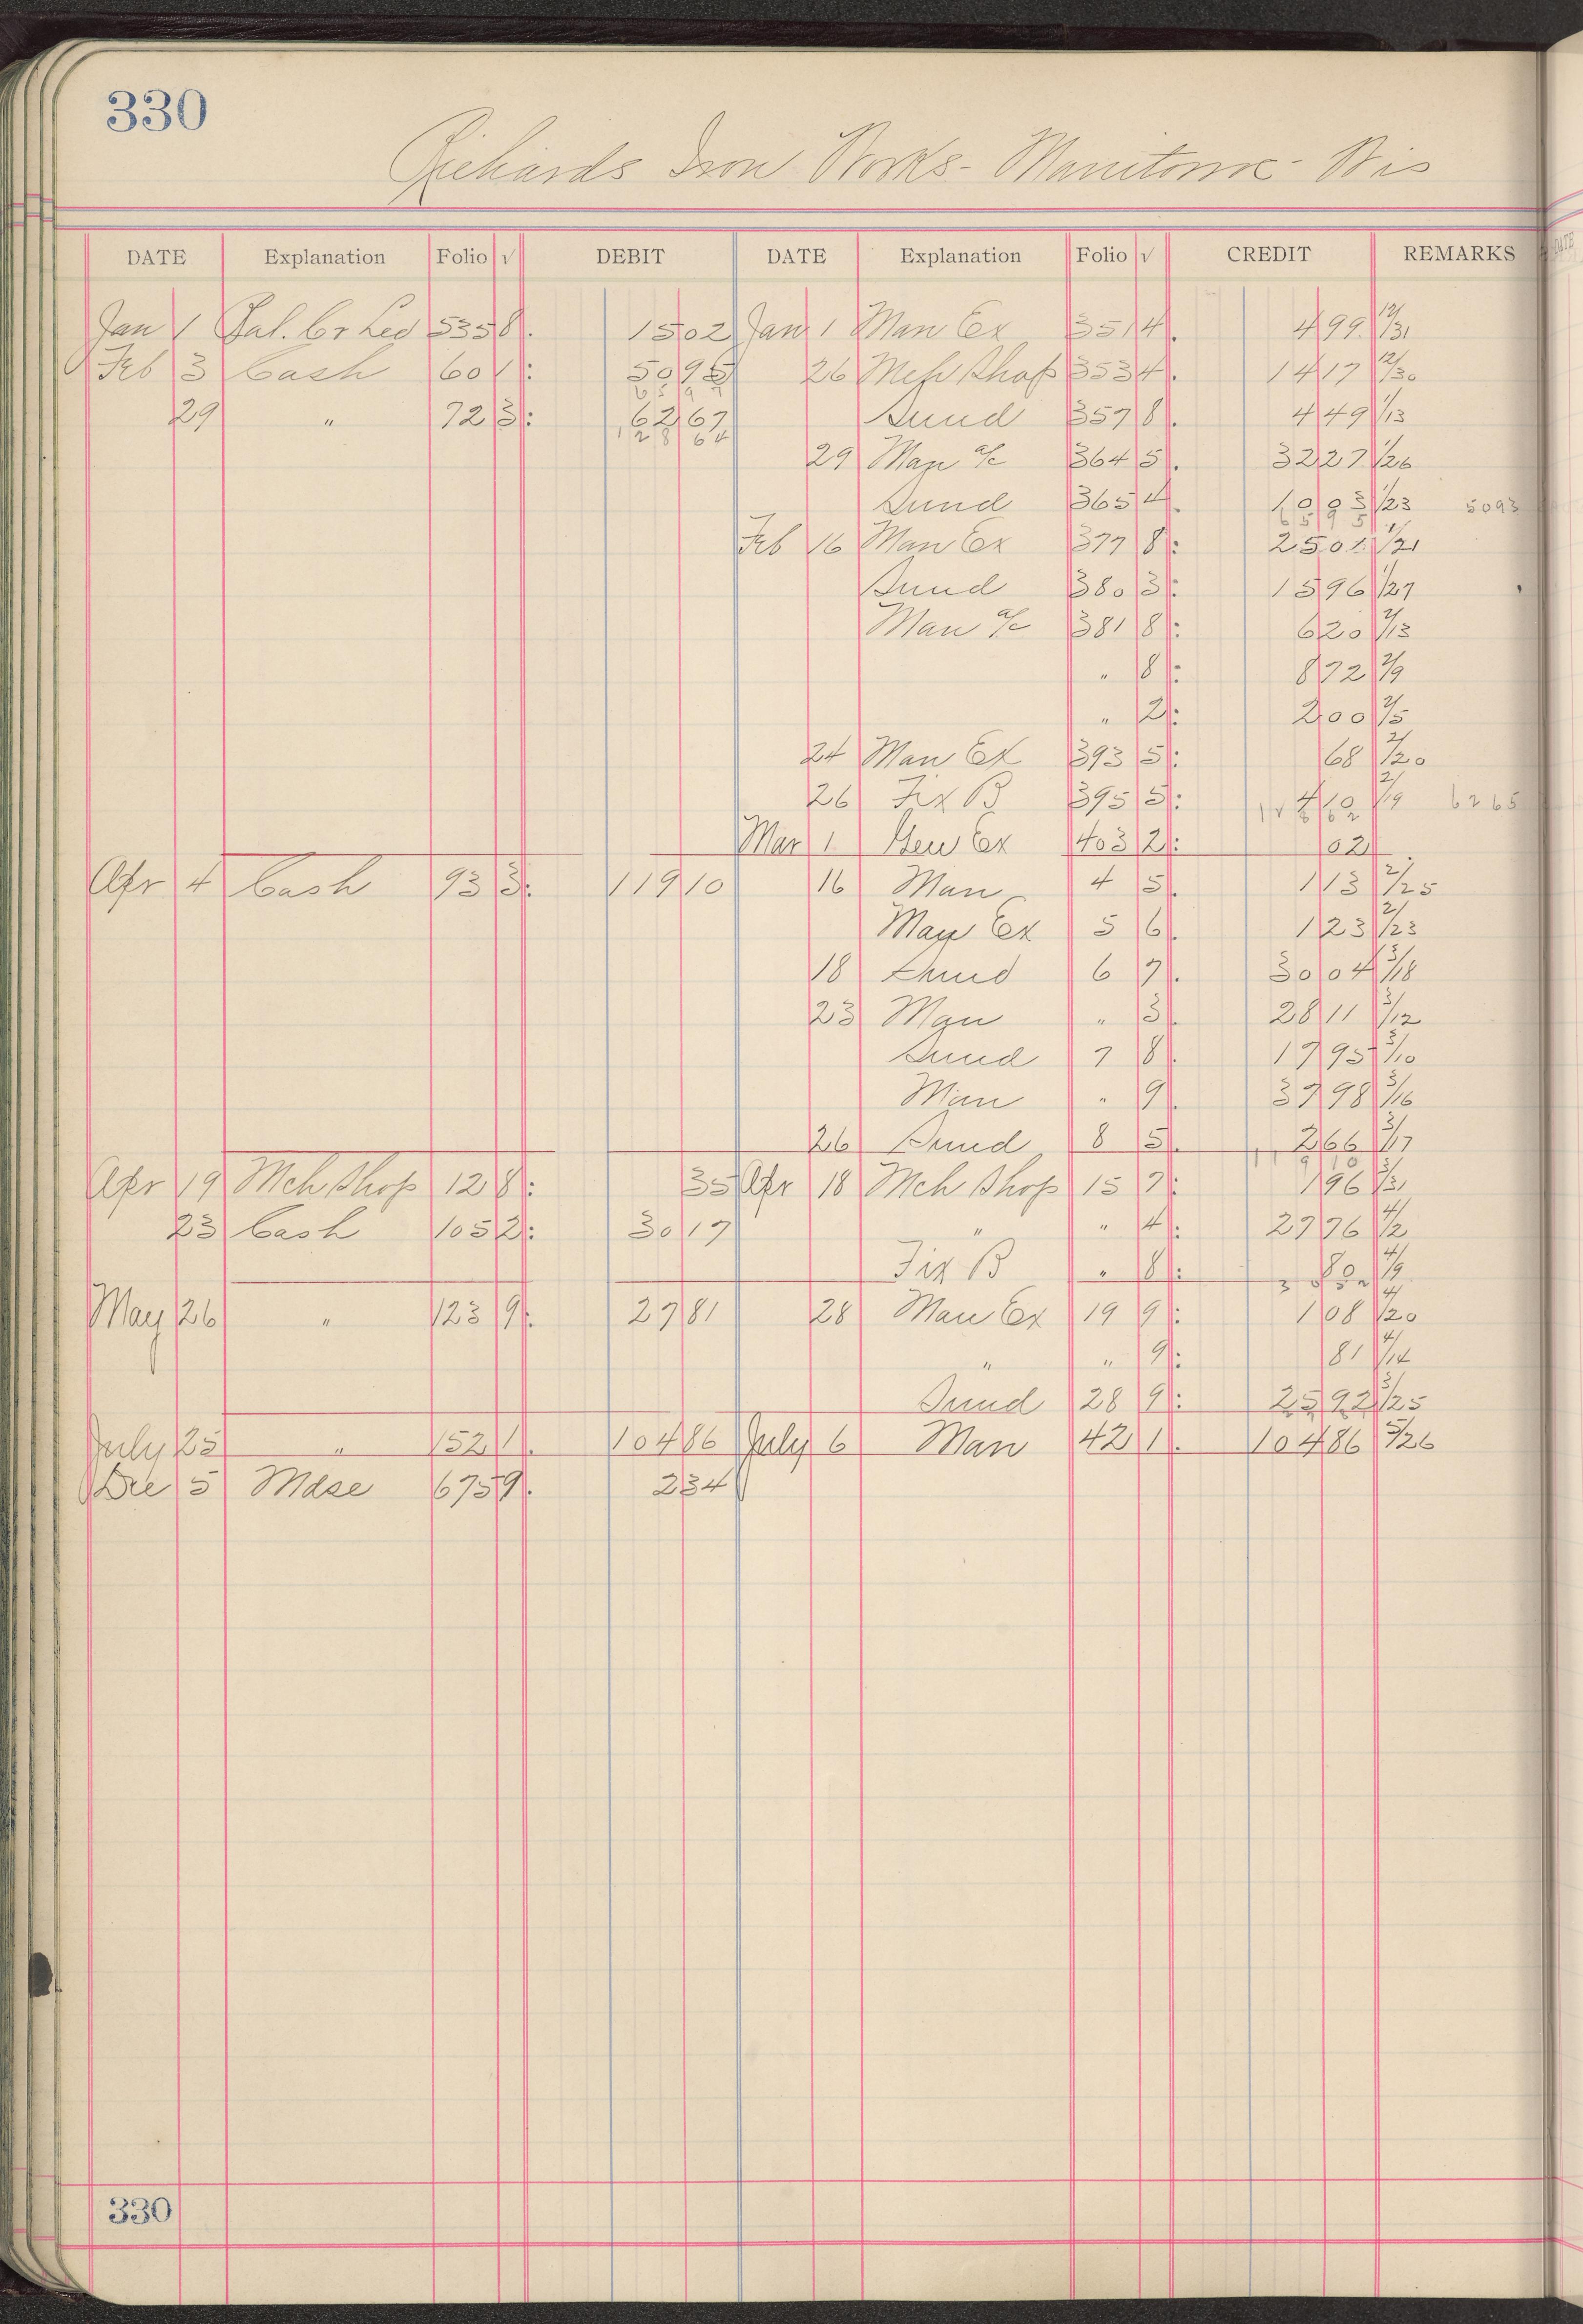 330
Richards Iron Works - Manitowoc - Wis
DATE Explanation Folio √ DEBIT DATE Explanation Folio √ CREDIT REMARKS
Jan 1 Bal. Cr Led 535 8. 15 02 Jan 1 Man Ex 351 4. 4 99 12/31
Feb 3 Cash 60 1: 50 95 26 Mch Shop 353 4. 14 17 12/30
65 97
29 " 72 3: 62 67 Sund 357 8. 4 49 1/13
128 64
29 Man a/c 364 5. 32 27 1/26
Sund 365 4. 10 03 1/23 5093
65 95
Feb 16 Man Ex 377 8: 25 01 1/21
Sund 380 3: 15 96 1/27
Man a/c 381 8: 6 20 2/13
" 8: 8 72 2/9
" 2: 2 00 2/5
24 Man Ex 393 5: 68 2/20
26 Fix B 395 5: 4 10 2/19 6265
128 62
Mar 1 Gen Ex 403 2: 02
Apr 4 Cash 93 3: 119 10 16 Man 4 5. 1 13 2/25
Man Ex 5 6. 1 23 2/23
18 Sund 6 7. 30 04 3/18
23 Man " 3. 28 11 3/12
Sund 7 8. 17 95 3/10
Man " 9. 37 98 3/16
26 Sund 8 5. 2 66 3/17
119 10
Apr 19 Mch Shop 12 8: 35 Apr 18 Mch Shop 15 7: 1 96 3/31
23 Cash 105 2: 30 17 " " 4: 27 76 4/2
Fix B " 8: 80 4/9
May 26 " 123 9: 27 81 28 Man Ex 19 9: 1 08 4/20
" " 9: 81 4/14
Sund 28 9: 25 92 3/25
July 25 " 152 1. 104 86 July 6 Man 42 1. 104 86 5/26
Dec 5 Mdse 675 9. 2 34
330